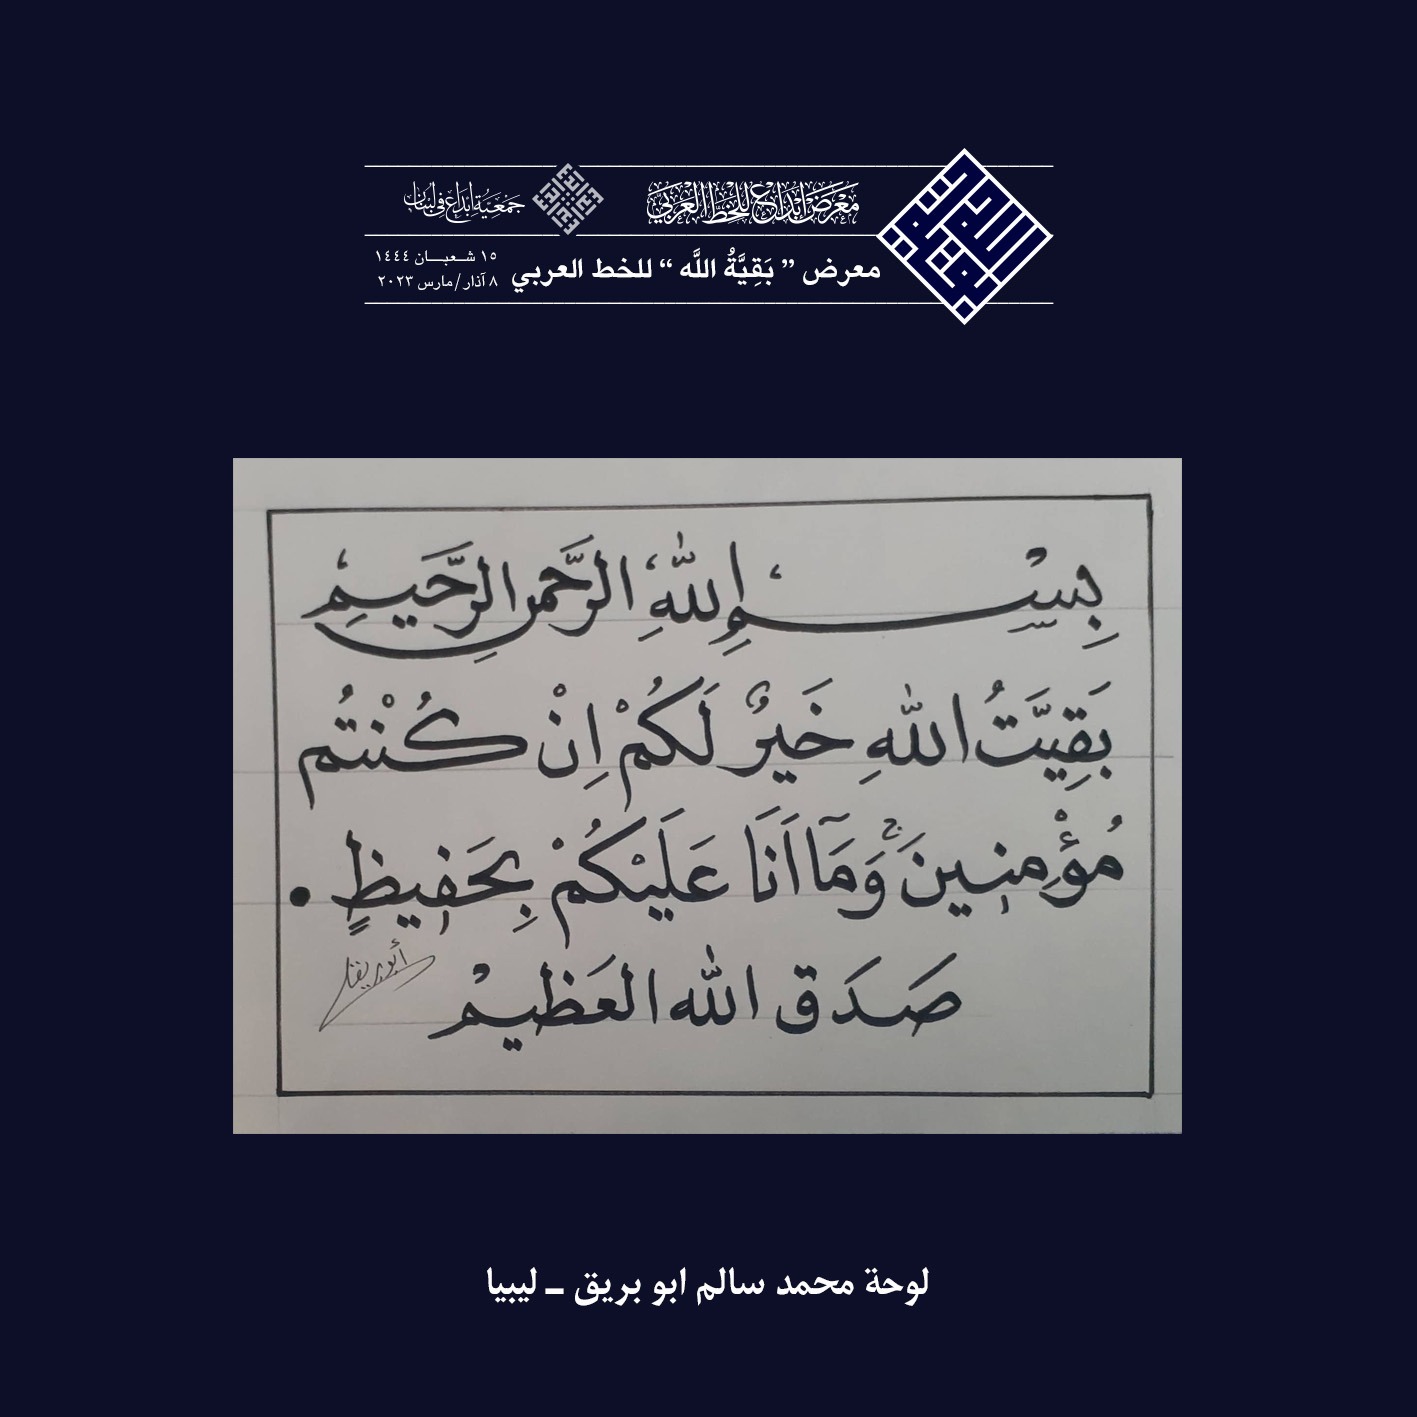 معرض إبداع للخط العربي
جمعية إبداع في لبنان
معرض ” بَقِيَّةُ اللَّه “ للخط العربي
١٥ شعبان ١٤٤٤
٨ آذار/مارس ٢٠٢٣
بقية الله
بِسْمِ اللهِ الرَّحمنِ الرَّحِيمِ
بَقِيَّتُ اللهِ خَيرٌ لَكُمْ اِنْ كُنْتُم
مُؤْمِنِينَ ۚ وَمَآ اَنَا عَلَيْكُمْ بِحَفِيظٍ .
صَدَق الله العَظيمْ
لوحة محمد سالم ابو بريق ـ ليبيا